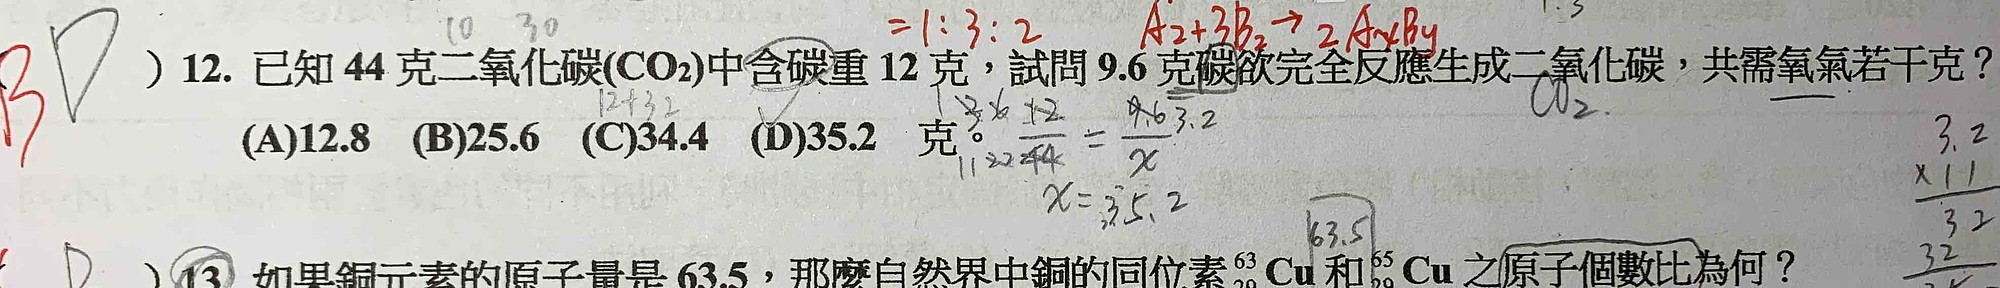 10 30 =1:3:2 A2+3B2→2AxBy 1:3
B D )12. 已知 44 克二氧化碳(CO2)中含碳重 12 克，試問 9.6 克碳欲完全反應生成二氧化碳，共需氧氣若干克？
12+32 CO2.
(A)12.8 (B)25.6 (C)34.4 (D)35.2 克。 12/44 = 9.6/x 3.2
x=35.2
3.2
×11
32
32
63.5
D )13. 如果銅元素的原子量是 63.5，那麼自然界中銅的同位素 63 29 Cu 和 65 29 Cu 之原子個數比為何？